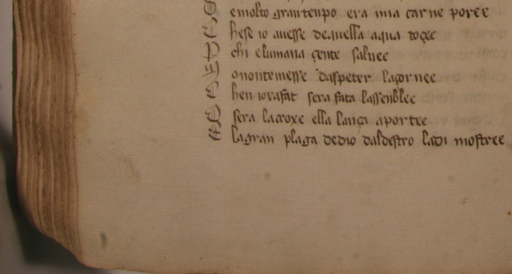 E molto gran tenpo era mia carne poree
he se io avesse de quella aqua toçee
chi elumana çente salvee
O non temesse daspeter la çornee
hen iosafat sera fata lassenblee
E sera la croxe ella lança aportee
E la gran plaga de dio dal destro ladi mostree